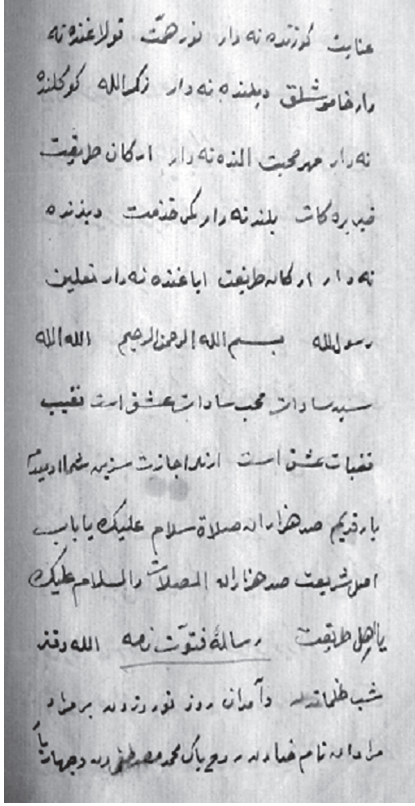 عنایت كوزنده نه دار نور همّت قولاغنده نه
دار خاموشلق دیلنده نه دار ذكر الله كوكلنده
نه دار مهر محبت النده نه دار اركان طریقت
بلنده نه دار كمر خدمت دیزنده
نه دار اركان طریقت ایاغنده نه دار نعلین
رسول الله بسم الله الرحمن الرحیم الله الله
سید سادات محب سادات عشق است نقیب
نقبات عشق است اجازت سزین
یار قدیم صد هزاران صلاة سلام علیك یا باب
اهل شریعت صد هزاران الصلات والسلام علیك
یا اهل طریقت رسالهٔ فتوّت نامه الله
شب ظلماتدن وآمدن روز نور بر مراد
مرادان نام خدا روح پاك محمد مصطفی